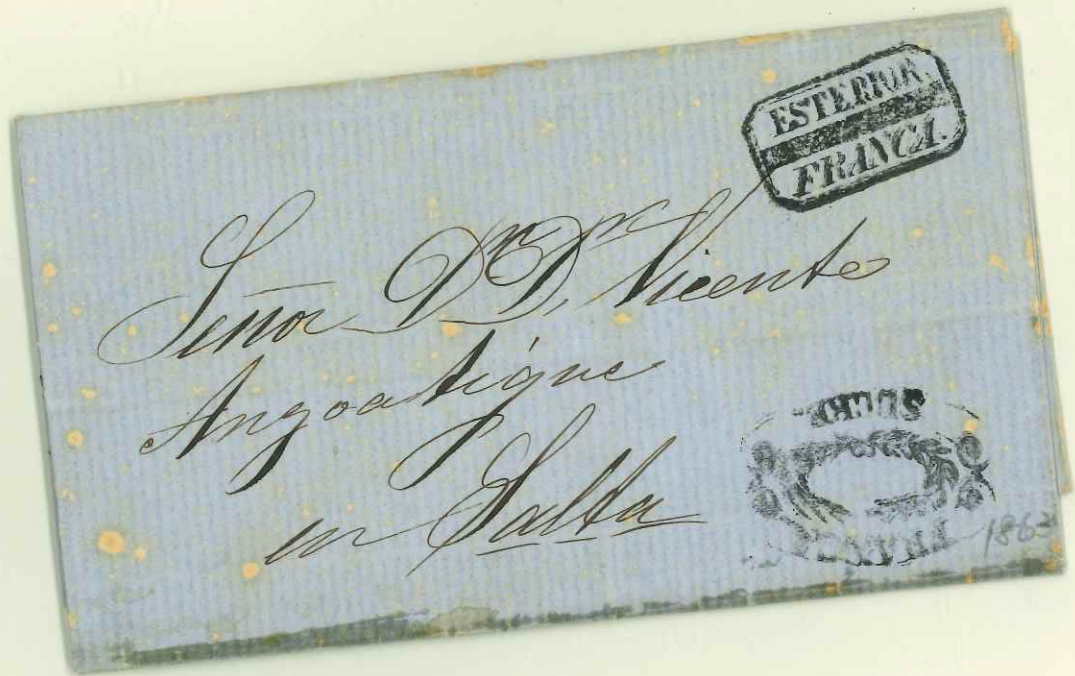 ESTERIOR
FRANCA.
Señor Dn Dn Vicente
Angoatigue
en Salta
FRANCA
1863